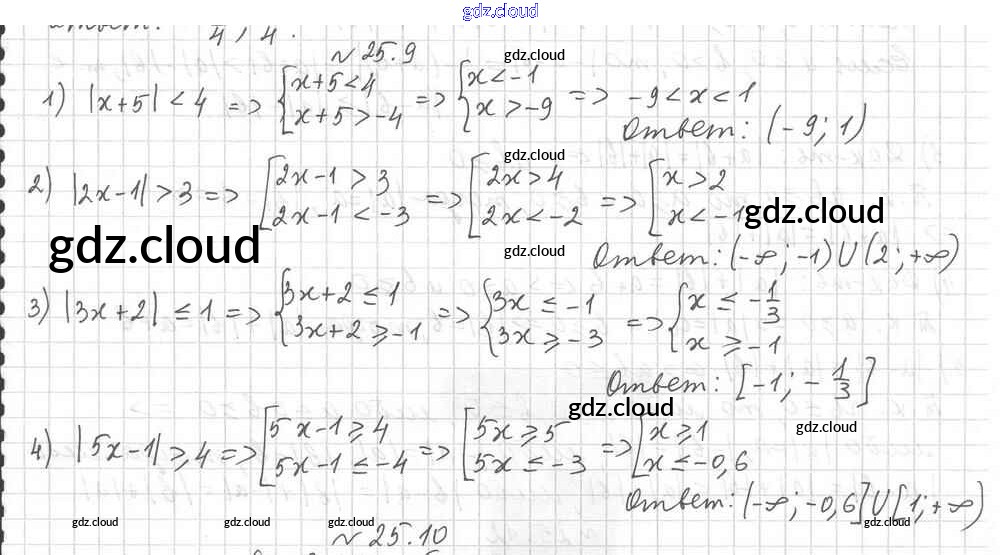 gdz.cloud
4 ; 4 .
№ 25.9
gdz.cloud
1) |x+5| < 4 => { x+5<4 x+5>-4 => { x<-1 x>-9 => -9<x<1
Ответ: (-9; 1)
gdz.cloud
2) |2x-1| > 3 => [ 2x-1>3 2x-1<-3 => [ 2x>4 2x<-2 => [ x>2 x<-1
gdz.cloud
gdz.cloud
gdz.cloud
Ответ: (-∞; -1) U (2; +∞)
3) |3x+2| ≤ 1 => { 3x+2 ≤ 1 3x+2 ≥ -1 => { 3x ≤ -1 3x ≥ -3 => { x ≤ -1/3 x ≥ -1
Ответ: [-1; -1/3]
gdz.cloud
gdz.cloud
4) |5x-1| ≥ 4 => [ 5x-1 ≥ 4 5x-1 ≤ -4 => [ 5x ≥ 5 5x ≤ -3 => [ x ≥ 1 x ≤ -0,6
Ответ: (-∞; -0,6] U [1; +∞)
gdz.cloud gdz.cloud gdz.cloud gdz.cloud
№ 25.10